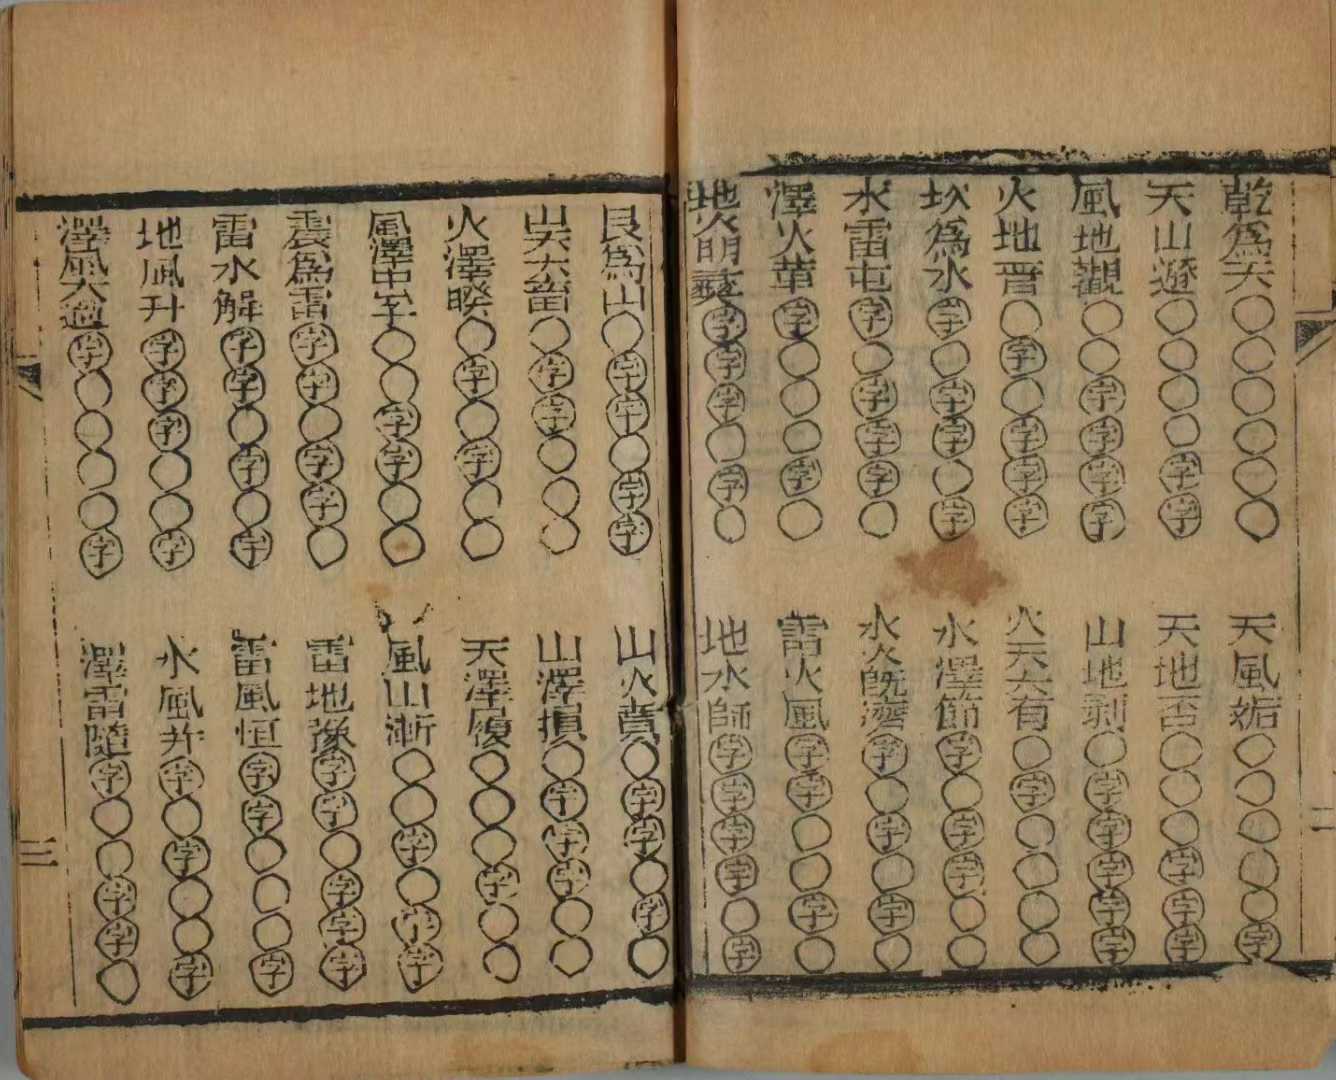 乾為天○○○○○○
天風姤○○○○○字
天山遯○○○○字字
天地否○○○字字字
風地觀○○字字字字
山地剝○字字字字字
火地晋○字○字字字
火天大有○字○○○○
坎為水字○字字○字
水澤節字○字字○○
水雷屯字○字字字○
水火既濟字○字○字○
澤火革字○○○字○
雷火風字字○○字○
地火明夷字字字○字○
地水師字字字字○字
艮為山○字字○字字
山火賁○字字○字○
山天大畜○字字○○○
山澤損○字字字○○
火澤睽○字○字○○
天澤履○○○字○○
風澤中孚○○字字○○
風山漸○○字○字字
震為雷字字○字字○
雷地豫字字○字字字
雷水解字字○字○字
雷風恒字字○○○字
地風升字字字○○字
水風井字○字○○字
澤風大過字○○○○字
澤雷隨字○○字字○
三